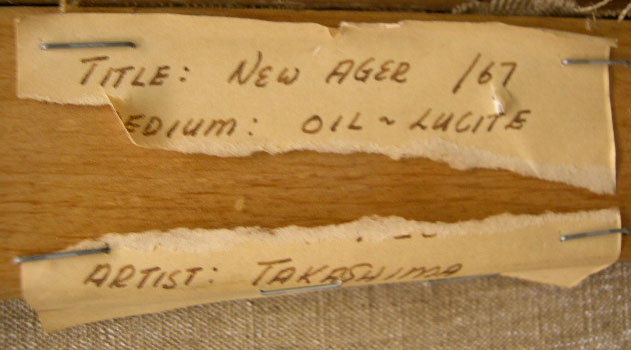 TITLE: NEW AGER /67
EDIUM: OIL ~ LUCITE
ARTIST: TAKASHIMA